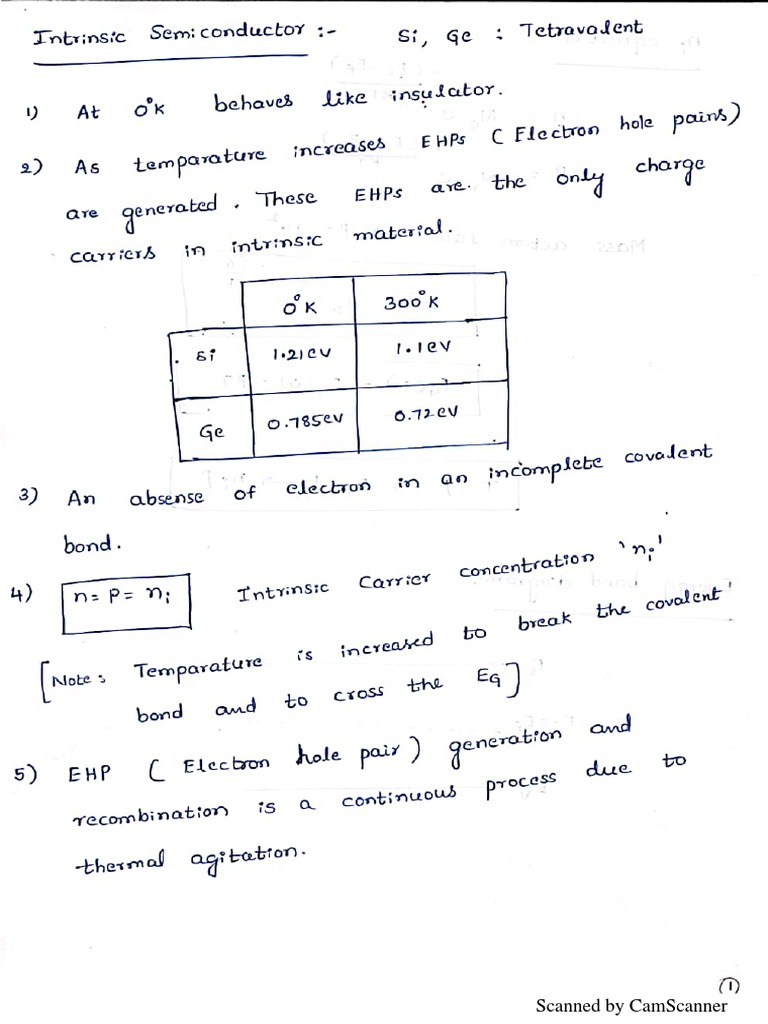 Intrinsic Semiconductor :- Si, Ge : Tetravalent
1) At 0°K behaves like insulator.
2) As temparature increases EHPs ( Electron hole pains)
are generated. These EHPs are. the only charge
carriers in intrinsic material.
0°K 300°K
Si 1.21ev 1.1ev
Ge 0.785ev 0.72ev
3) An absense of electron in an incomplete covalent
bond.
4) n = P = ni Intrinsic Carrier concentration 'ni'
[Note : Temparature is increased to break the covalent
bond and to cross the EG]
5) EHP ( Electron hole pair) generation and
recombination is a continuous process due to
thermal agitation.
1
Scanned by CamScanner